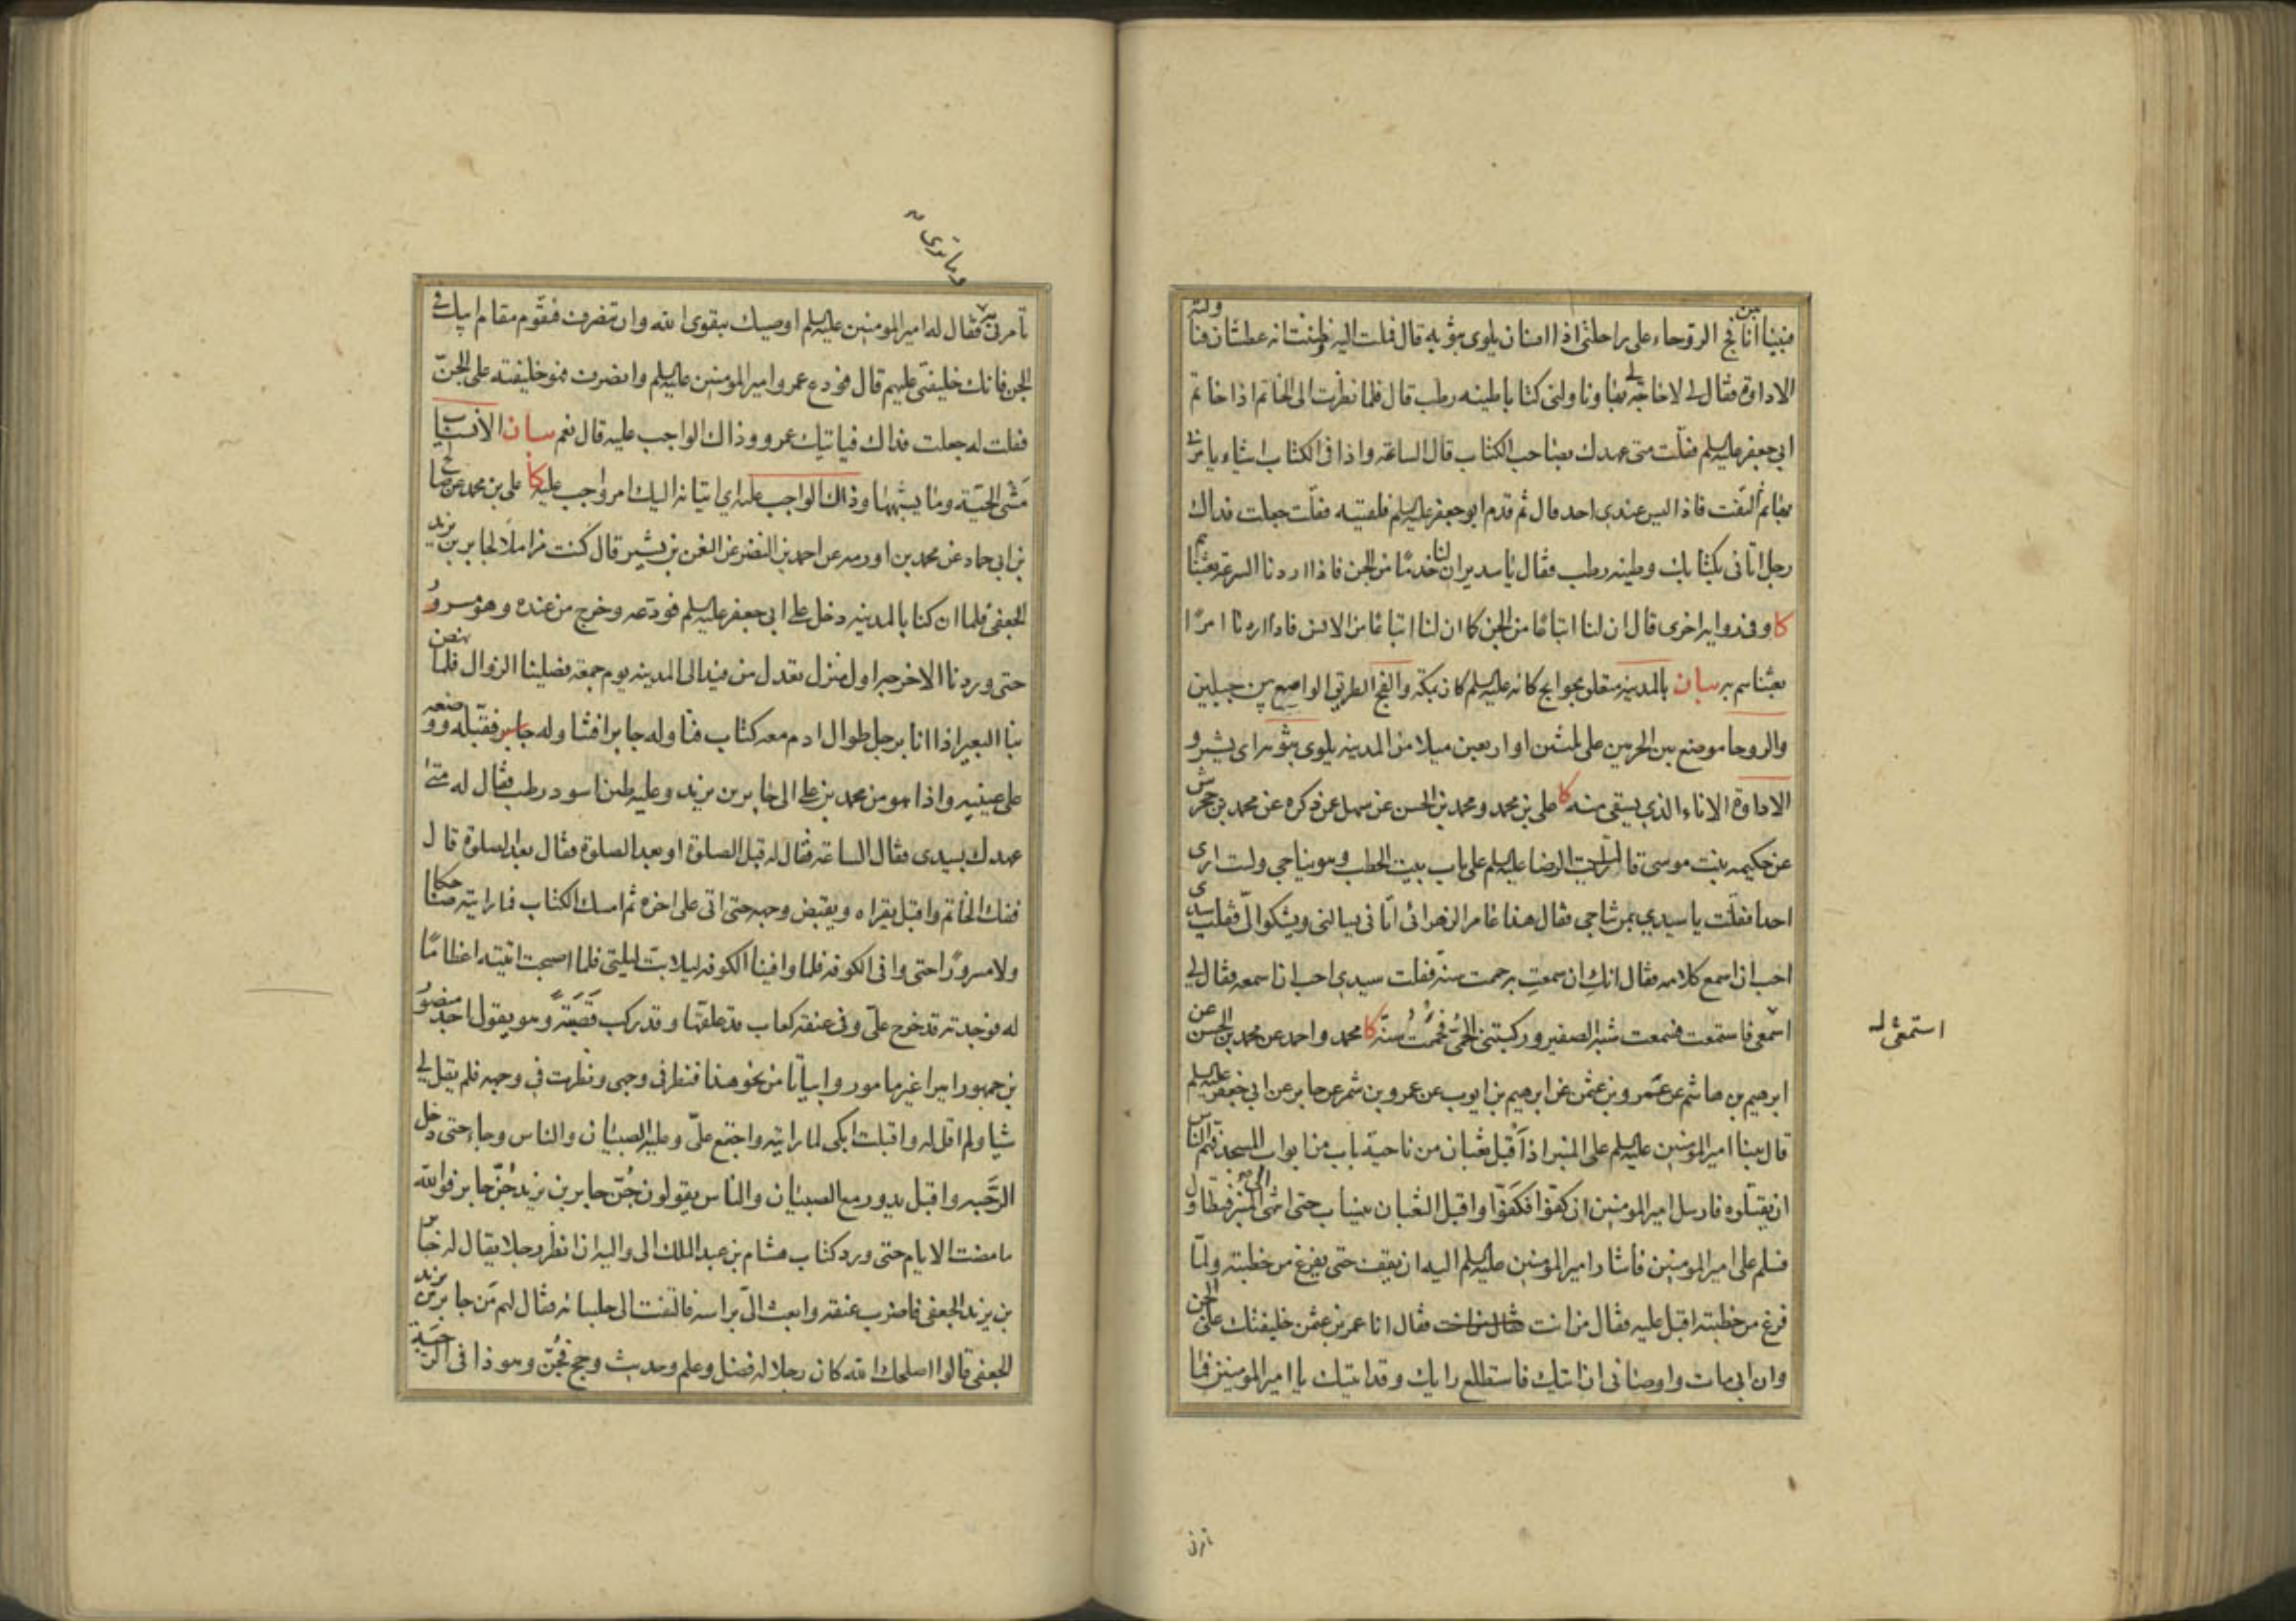 فبينا أنا بين فج الروحاء على راحلتي اذا انسان يلوى بثوبه قال فملت اليه وظننت انه عطشان فناولته
الاداوة فقال لى لا حاجة لي بها وناولنى كتابا طينه رطب قال فلما نظرت الى الخاتم اذا خاتم
ابي جعفر عليه السلم فقلت متى عهدك بصاحب الكتاب قال الساعة واذا فى الكتاب اشياء يامرنى
بها ثم التفت فاذا ليس عندى احد قال ثم قدم ابو جعفر عليه السلم فلقيته فقلت جعلت فداك
رجل اتانى بكتابك وطينه رطب فقال يا سدير ان لنا خدما من الجن فاذا اردنا السرعة بعثناهم
كا وفى رواية اخرى قال ان لنا اتباعا من الجن كما ان لنا اتباعا من الانس فاذا اردنا امرا
بعثناهم بيان بالمدينة متعلق بحوايج كانه عليه السلم كان بمكة والفج الطريق الواسع بين جبلين
والروحا موضع بين الحرمين على ثلثين او اربعين ميلا من المدينة يلوى بثوبه اى يشير و
الاداوة الاناء الذي يسقى منه كا على بن محمد ومحمد بن الحسن عن سهل عمن ذكره عن محمد بن جحرش
عن حكيمه بنت موسى قالت رايت الرضا عليه السلم على باب بيت الحطب وهو يناجي ولست ارى
احدا فقلت يا سيدي لمن تناجي فقال هذا عامر الزهرائى اتانى يسالنى ويشكو الىّ فقلت سيدى
احب ان اسمع كلامه فقال انكِ ان سمعتِ به حممت سنة فقلت سيدي احب ان اسمعه فقال لى
اسمعى فاستمعت فسمعت شبه الصفير وركبتنى الحمّى فحُممتُ سنة كا محمد واحد عن محمد بن الحسن عن
ابرهيم بن هاشم عن عمرو بن عثمن عن ابرهيم بن ايوب عن عمرو بن شمر عن جابر عن ابي جعفر عليه السلم
قال بينا امير المومنين عليه السلم على المنبر اذ أقبل ثعبان من ناحية باب من ابواب المسجد فهمّ الناس
ان يقتلوه فارسل امير المومنين ان كفّوا فكَفّوا واقبل الثعبان ينساب حتى انتهى الى المنبر فتطاول
فسلم على امير المومنين فأشار امير المومنين عليه السلم اليه ان يقف حتى يفرغ من خطبته ولمّا
فرغ من خطبته اقبل عليه فقال من انت فقال انا عمر بن عثمن خليفتك على الجن
وان ابى مات واوصانى ان اتيك فاستطلع رايك وقد اتيتك يا امير المومنين فما
استمعى له
تامرنى
وما ترى
تأمرنى به فقال له امير المومنين عليه السلم اوصيك بتقوى الله وان تنصرف فتقوم مقام ابيك فى
الجن فانك خليفتى عليهم قال فودع عمرو امير المومنين عليه السلم وانصرف فهو خليفته على الجنّ
فقلت له جعلت فداك فياتيك عمرو وذاك الواجب عليه قال نعم بيان الانسياب
مَشْى الحيّة وما يشبهها وذاك الواجب عليه اي اتيانه اليك امر واجب عليه كا على بن محمد عن صالح
بن ابى حماد عن محمد بن اورمه عن احمد بن النضر عن النعمن بن بشير قال كنت مزاملًا لجابر بن يزيد
الجعفى فلما ان كنا بالمدينه دخل على ابى جعفر عليه السلم فودعه وخرج من عنده وهو مسرورٌ
حتى وردنا الاخرجه اول منزل تعدل من فيد الى المدينه يوم جمعة فصلينا الزوال فلما نهض
بنا البعير اذا انا برجل طوال ادم معه كتاب فناوله جابرا فتناوله جابر فقبّله ووضعه
على عينيه واذا هو من محمد بن على الى جابر بن يزيد وعليه طين اسود رطب فقال له متى
عهدك بسيدى فقال الساعة فقال له قبل الصلوة او بعد الصلوة فقال بعد الصلوة قال
ففك الخاتم واقبل يقراه ويقبض وجهه حتى اتى على اخره ثم امسك الكتاب فما رايته ضاحكا
ولا مسرورًا حتى وافى الكوفه فلما وافينا الكوفه ليلا بت ليلتى فلما اصبحت اتيته اعظامًا
له فوجدته قد خرج علىّ وفى عنقه كعاب قد علقها وقد ركب قَصَبَةً وهو يقول اجد منصور
بن جمهور اميرا غير مامور وابياتا من نحو هذا فنظر فى وجهى ونظرت في وجهه فلم يقل لي
شيا ولم اقل له واقبلت ابكى لما رايته واجتمع علىّ وعليه الصبيان والناس وجاء حتى دخل
الرَّحَبه واقبل يدور مع الصبيان والناس يقولون جُنّ جابر بن يزيد جُنّ جابر فوالله
ما مضت الايام حتى ورد كتاب هشام بن عبد الملك الى واليه ان انظر رجلا يقال له جابر
بن يزيد الجعفى فاضرب عنقه وابعث الىّ براسه فالتفت الى جلسائه فقال لهم مَن جابر بن يزيد
الجعفى قالوا اصلحك الله كان رجلا له فضل وعلم وحديث وحج فجُنّ وهو ذا فى الرحبة